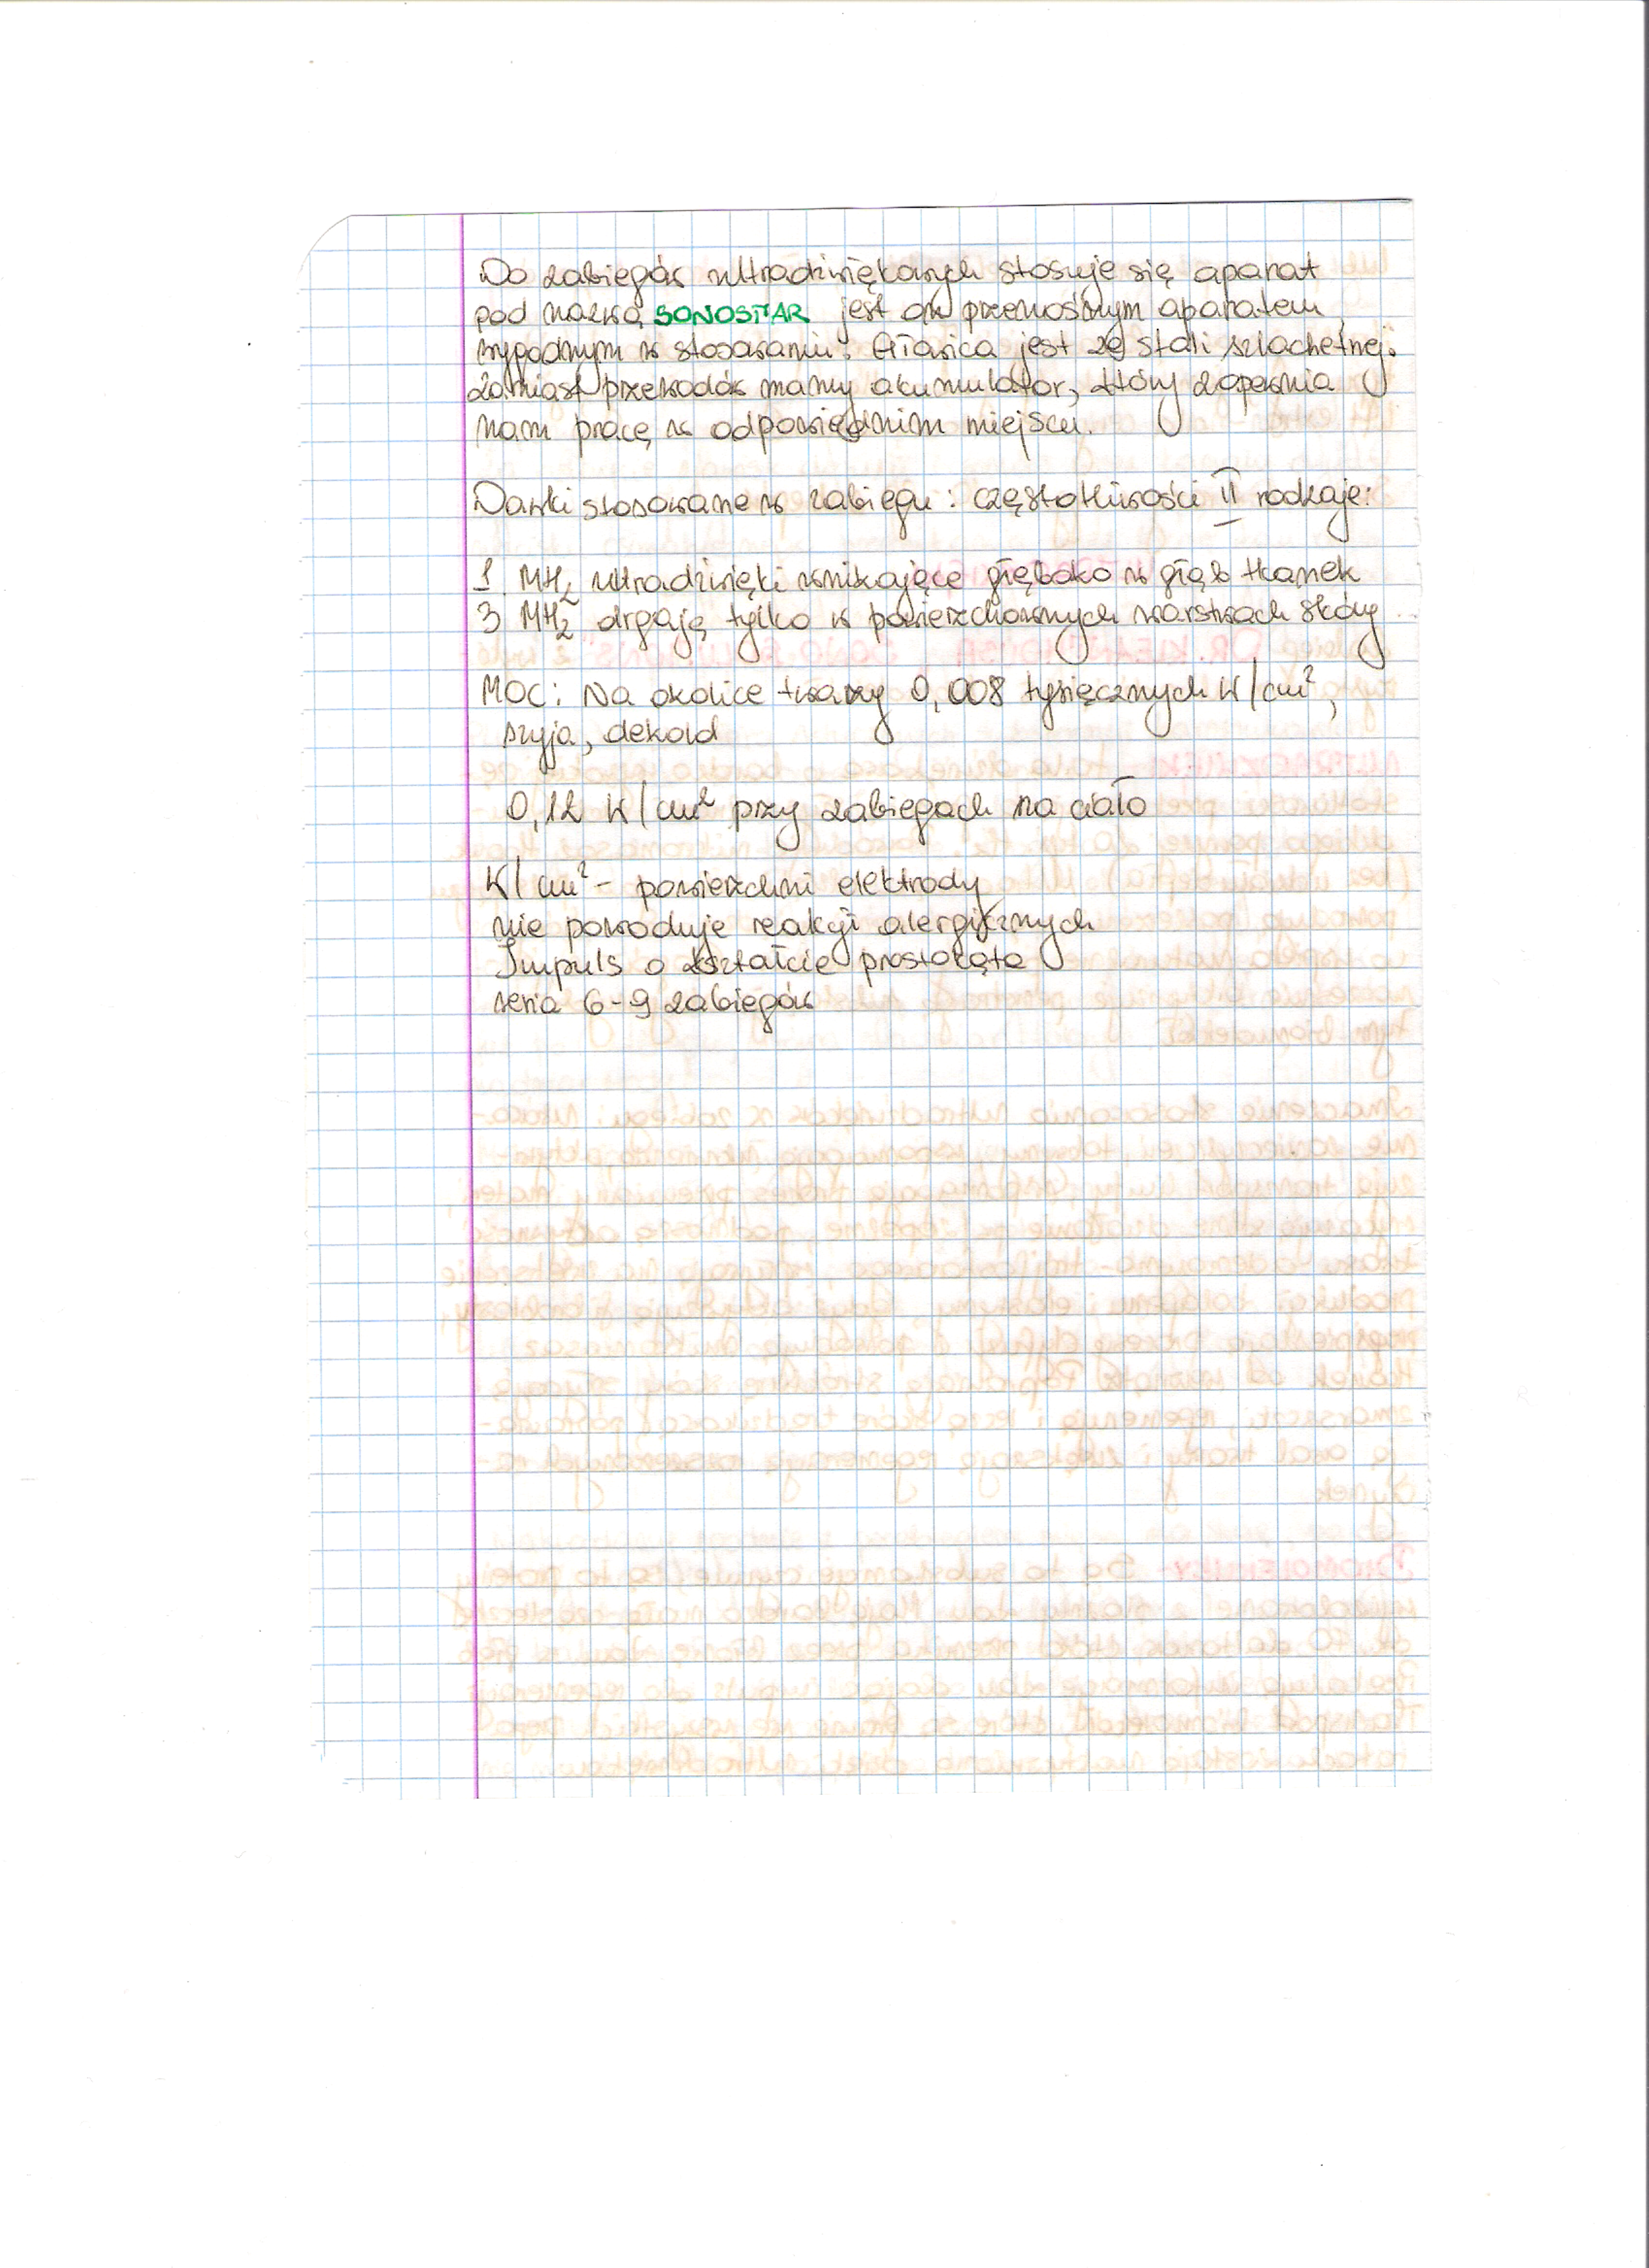 Do zabiegów ultradźwiękowych stosuje się aparat
pod nazwą SONOSTAR jest on przenośnym aparatem
wygodnym w stosowaniu. Głowica jest ze stali szlachetnej.
Zamiast przewodów mamy akumulator, który zapewnia
nam pracę w odpowiednim miejscu.
Dawki stosowane w zabiegu: częstotliwości II rodzaje:
1 MHz ultradźwięki wnikające głęboko w głąb tkanek
3 MHz drgają tylko w powierzchownych warstwach skóry
MOC: Na okolice twarzy 0,008 tysięcznych W/cm²,
szyja, dekold
0,12 W/cm² przy zabiegach na ciało
W/cm² - powierzchni elektrody
nie powoduje reakcji alergicznych
Impuls o kształcie prostokąta
seria 6-9 zabiegów